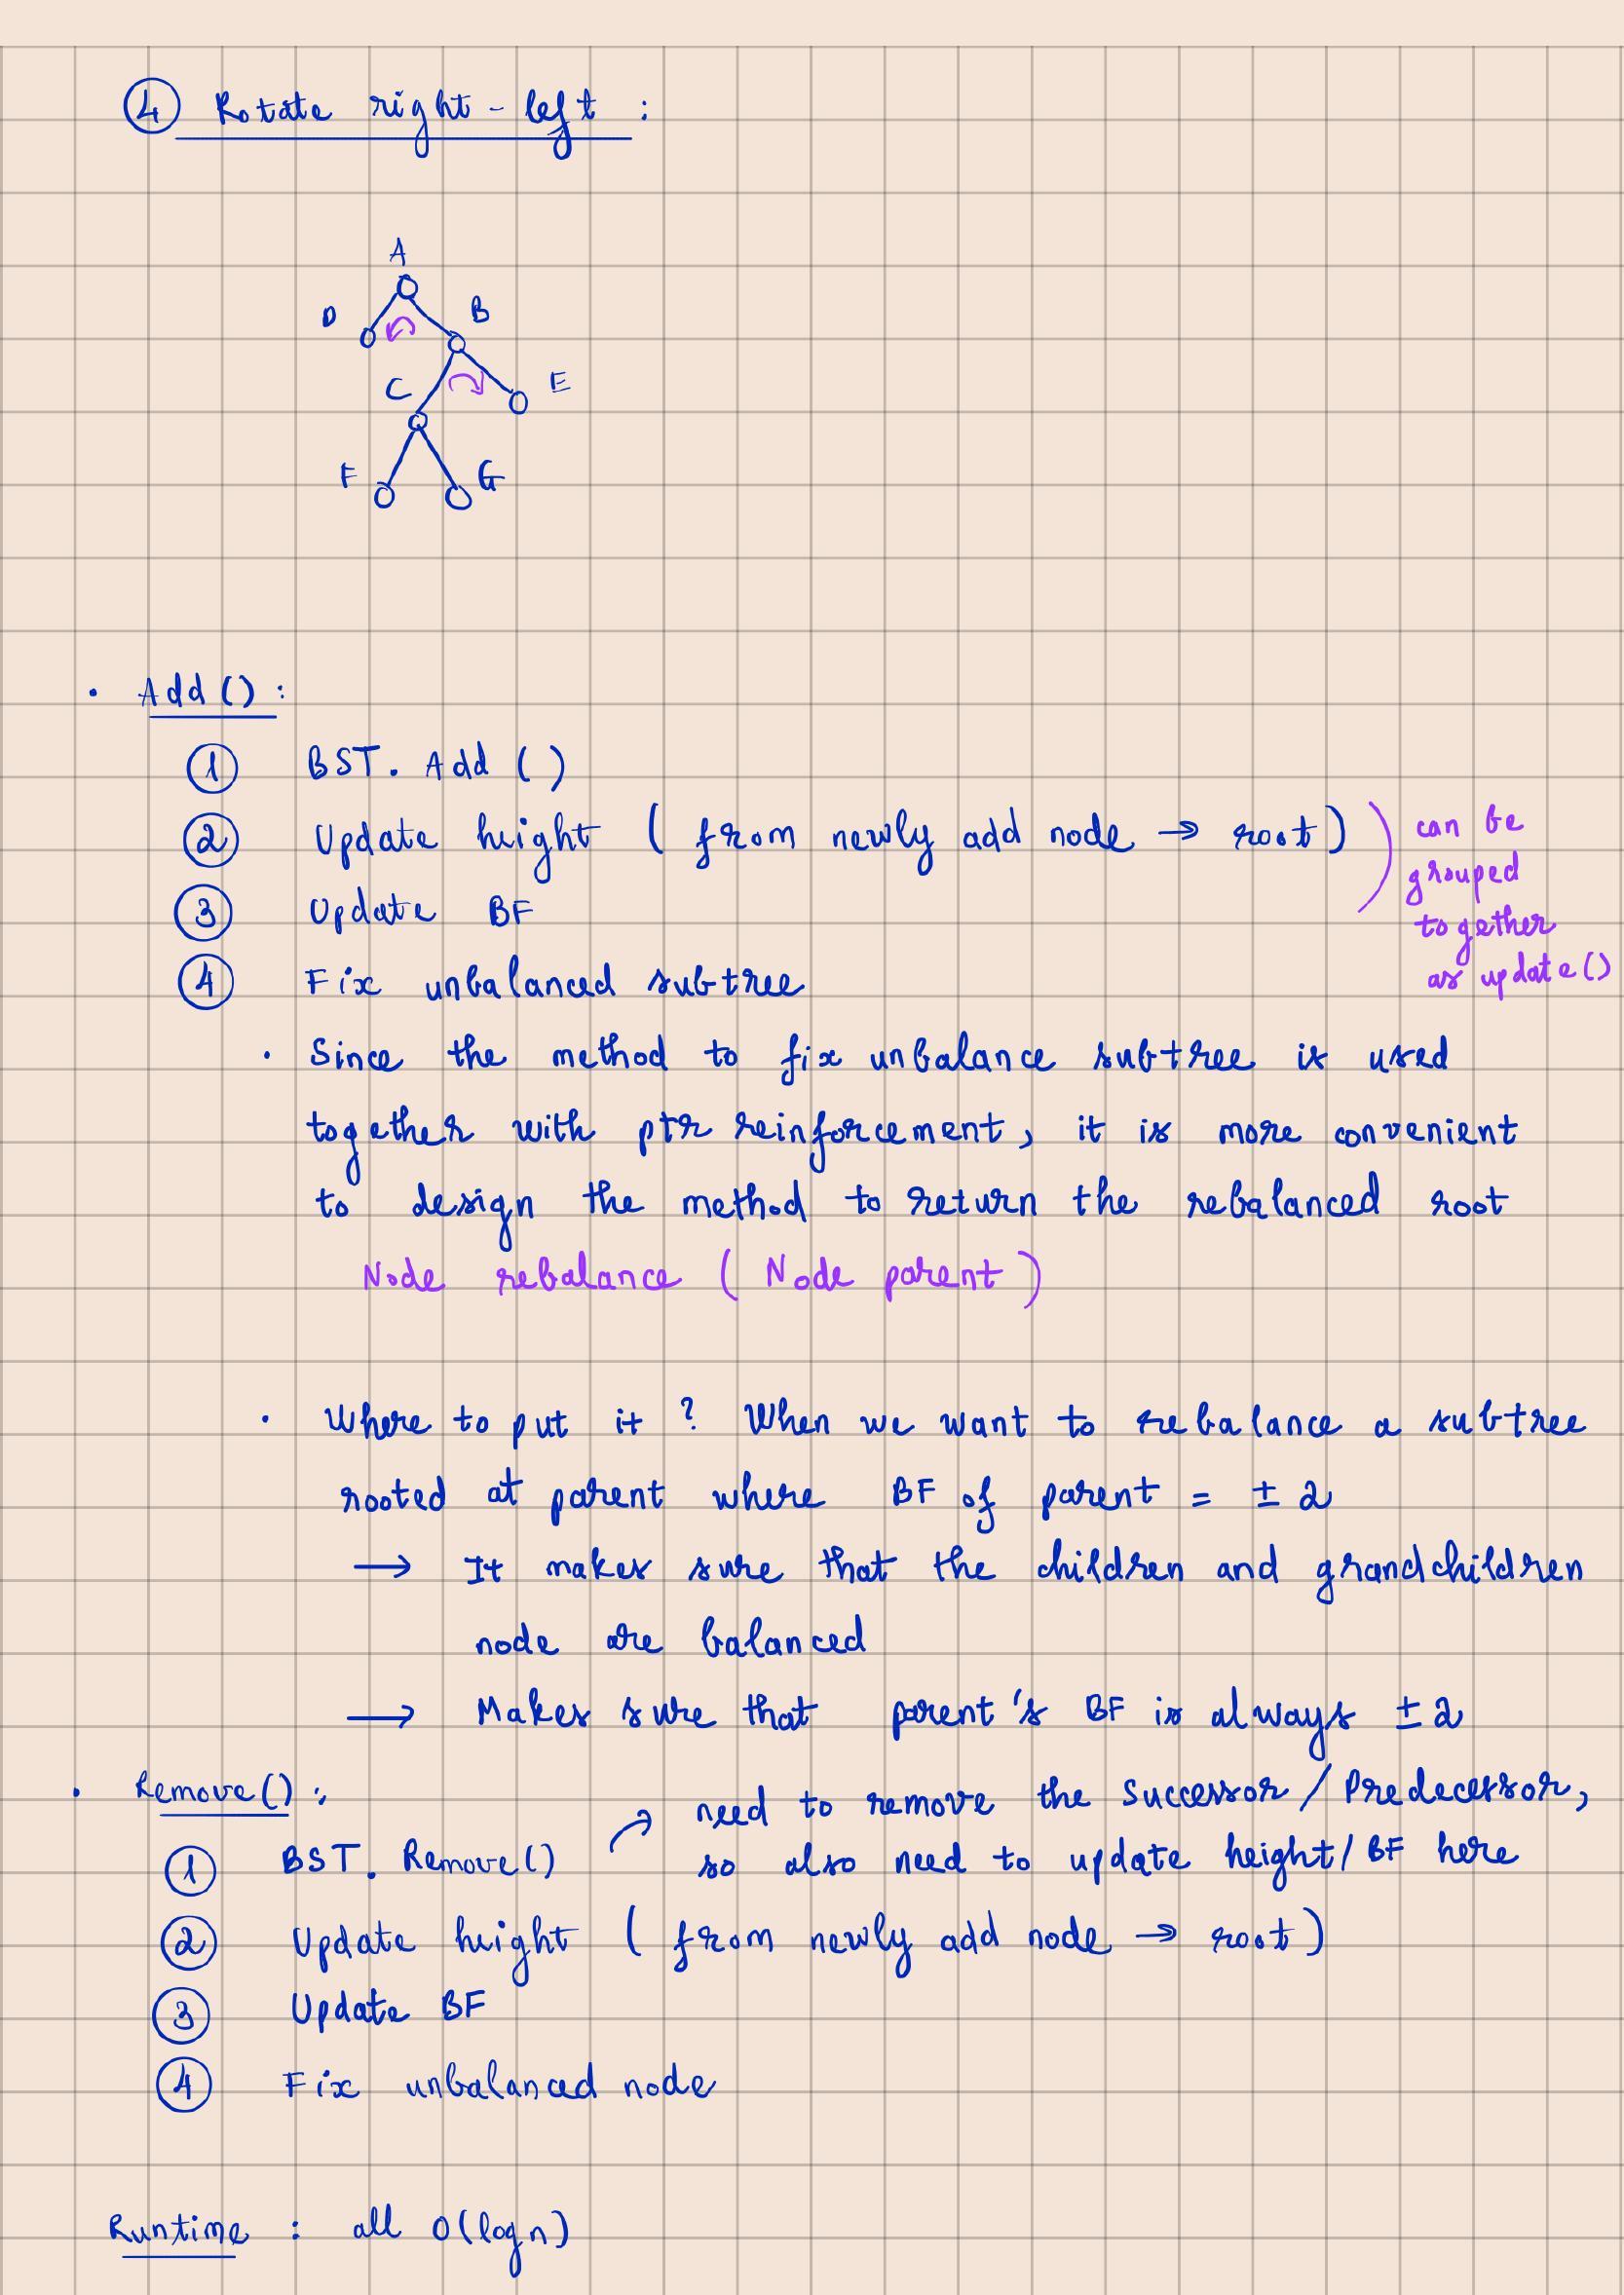 4 Rotate right-left :
A
D
B
C
E
F
G
• Add() :
1 BST. Add ()
2 Update height ( from newly add node → root )
can be
grouped
together
as update()
3 Update BF
4 Fix unbalanced subtree
• Since the method to fix unbalance subtree is used
together with ptr reinforcement, it is more convenient
to design the method to return the rebalanced root
Node rebalance ( Node parent )
• Where to put it ? When we want to rebalance a subtree
rooted at parent where BF of parent = ± 2
→ It makes sure that the children and grandchildren
node are balanced
→ Makes sure that parent's BF is always ± 2
• Remove() :
need to remove the Successor / Predecessor,
so also need to update height/BF here
1 BST. Remove()
2 Update height ( from newly add node → root )
3 Update BF
4 Fix unbalanced node
Runtime : all O(log n)